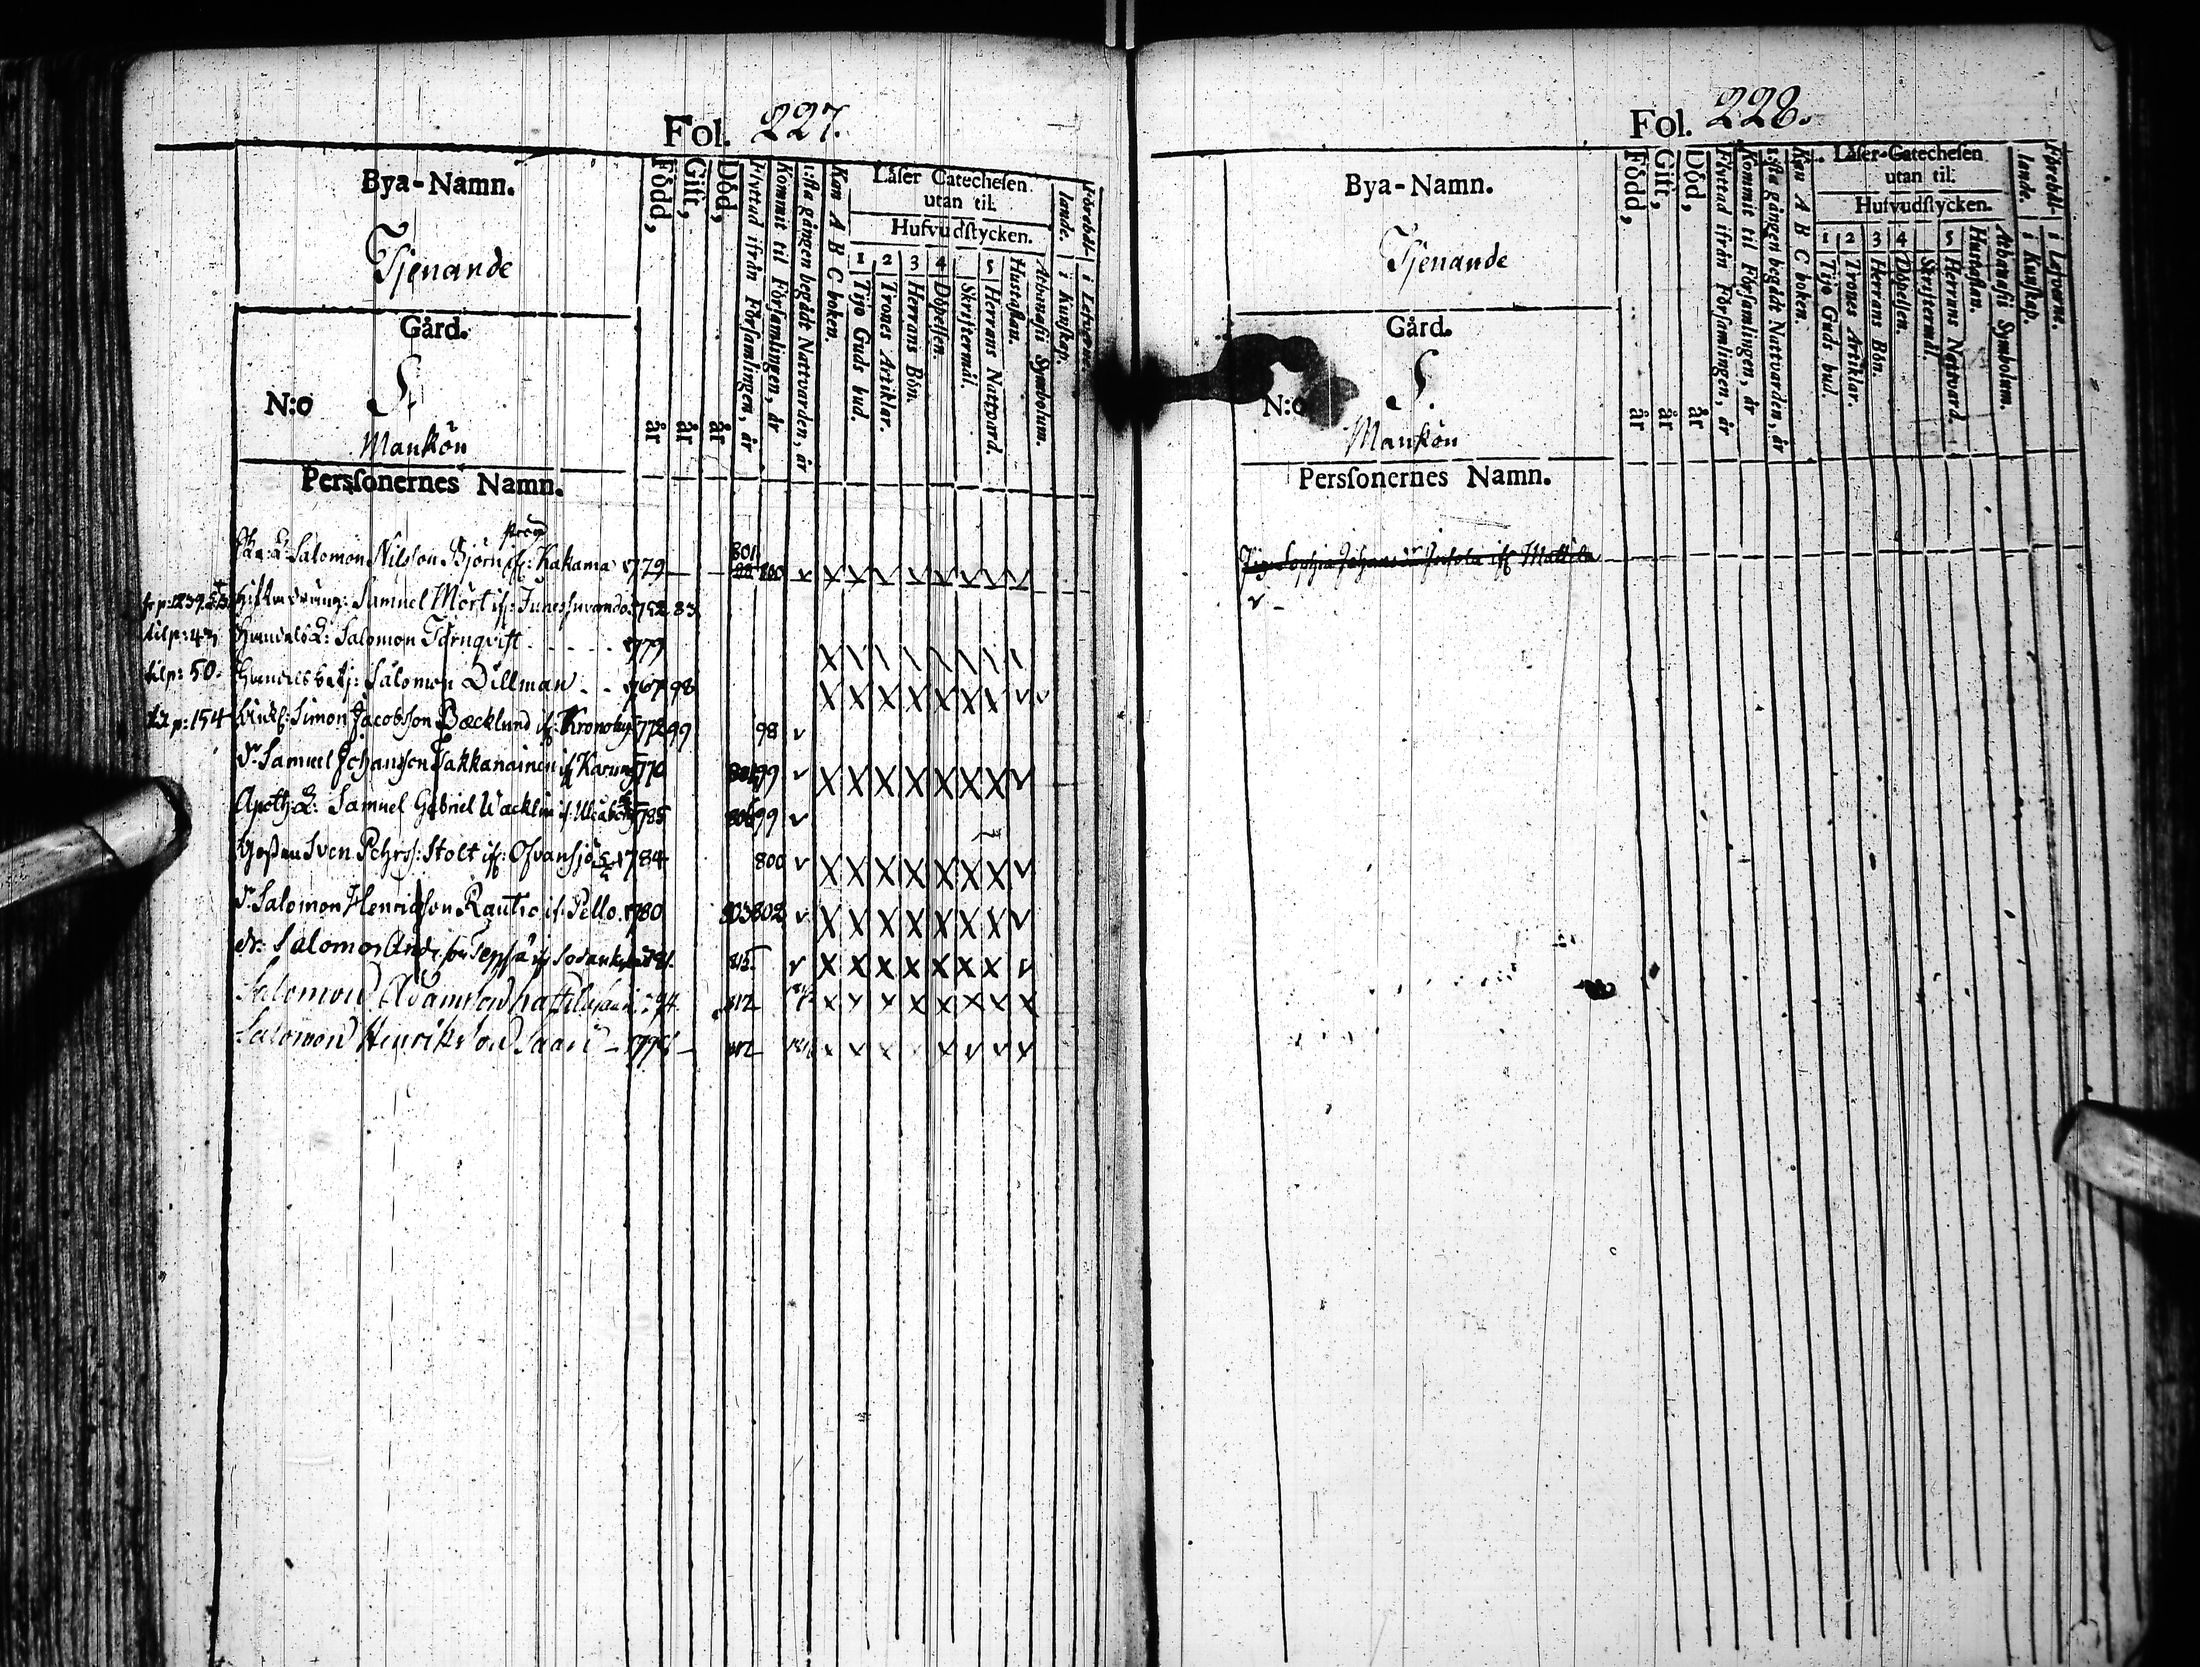 Fol. 227.
Bya-Namn.
Tjenande
Gård.
N:o S.
Mankön
Persſonernes Namn.
Född, år
Gift, år
Död, år
Flyttad ifrån Församlingen, år
Kommit til Församlingen, år
1:sta gången begådt Nattvarden, år
Kan A B C boken.
Läſer Catecheſen
utan til.
Hufvudſtycken.
1 Tijo Guds bud.
2 Trones Artiklar.
3 Herrans Bön.
4 Döpelſen.
Skriftermål.
5 Herrans Nattvard.
Hustaflan.
Athanaſii Symbolum.
Förehål-
lande.
i Kunſkap.
i Lefverne.
Salomon Nilsson Björn if: Kakama 1779 801 800
Samuel Mört if: Junossuvando 1752 83
til p: 43 Salomon Törnqvist 1779
til p: 50. Salomon Dillman 1767 98
til p: 154 Simon Jacobsson Bæcklund if: Kronoby 1772 99 98
Dr. Samuel Johansson Takkanainen if Karung 1770 801 99
Apoth: L: Samuel Gabriel Wacklin if: Uleåborg 1785 806 99
Gossen Sven Pehrs: Stolt if: Ofvansjö 1784 800
Dr. Salomon Henricsson Rautio if: Pello. 1780 803 802
dr: Salomon Anders son Seppä if Sodankylä 781. 815
Salomon Adamsson 794. 812
Salomon Henriksson Saari 812
Fol. 228.
Bya-Namn.
Tjenande
Gård.
N:o S.
Mankön
Persſonernes Namn.
Född, år
Gift, år
Död, år
Flyttad ifrån Församlingen, år
Kommit til Församlingen, år
1:sta gången begådt Nattvarden, år
Kan A B C boken.
Läſer Catecheſen
utan til.
Hufvudſtycken.
1 Tijo Guds bud.
2 Trones Artiklar.
3 Herrans Bön.
4 Döpelſen.
Skriftermål.
5 Herrans Nattvard.
Hustaflan.
Athanaſii Symbolum.
Förehål-
lande.
i Kunſkap.
i Lefverne.
Pig. Sophia Johansdr if Mattila